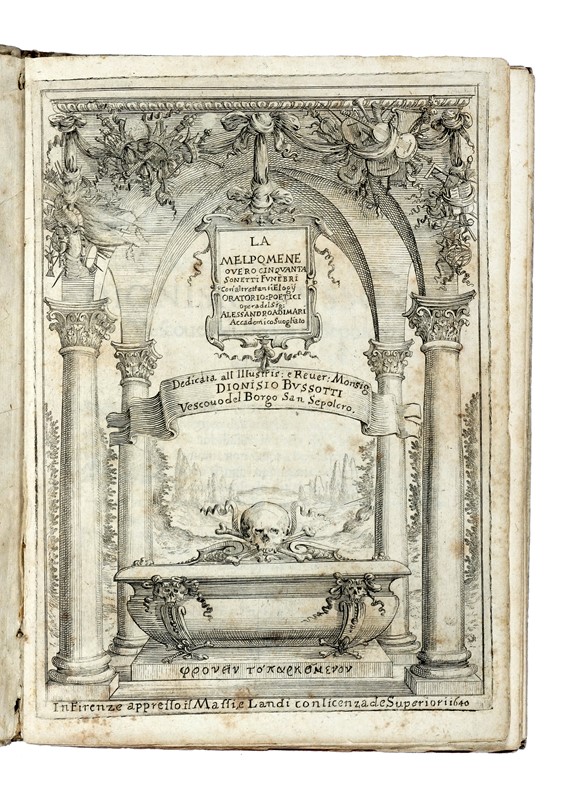 LA
MELPOMENE
OVERO CINQVANTA
SONETTI FVNEBRI
Con altrettanti Elogij
ORATORIO: POETICI
Opera del Sig:
ALESSANDRO ADIMARI
Accademico Suegliato
Dedicata all Illustris: e Reuer: Monsig
DIONISIO BVSSOTTI
Vescouo del Borgo San Sepolcro.
ΦΡΟΥΕΙΥ ΤΟ ΠΑΡΚΟΜΕΥΟΥ
In Firenze appresso il Massi, e Landi con licenza de Superiori 1640